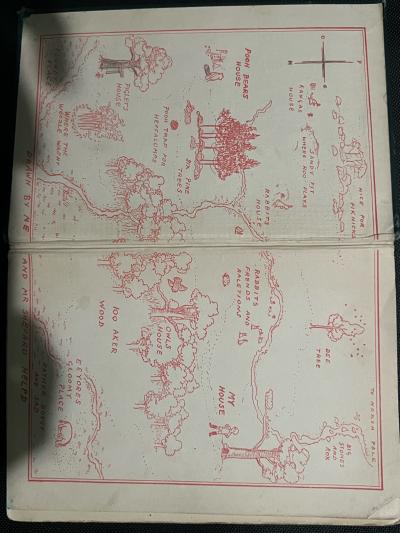 P
O
O
H
NICE FOR
PICNICKS
TO NORTH POLE
BIG
STONES
AND
ROX
BEE
TREE
SANDY PIT
WHERE ROO PLAYS
KANGAS
HOUSE
RABBITS
HOUSE
RABBITS
FRENDS AND
RALETIONS
MY
HOUSE
POOH BEARS
HOUSE
SIX PINE
TREES
POOH TRAP FOR
HEFFALUMPS
OWLS
HOUSE
PIGLETS
HOUSE
100 AKER
WOOD
WHERE THE
WOOZLE WASNT
EEYORES
GLOOMY
PLACE
RATHER BOGGY
AND SAD
PLACE
DRAWN BY ME AND MR SHEPARD HELPD